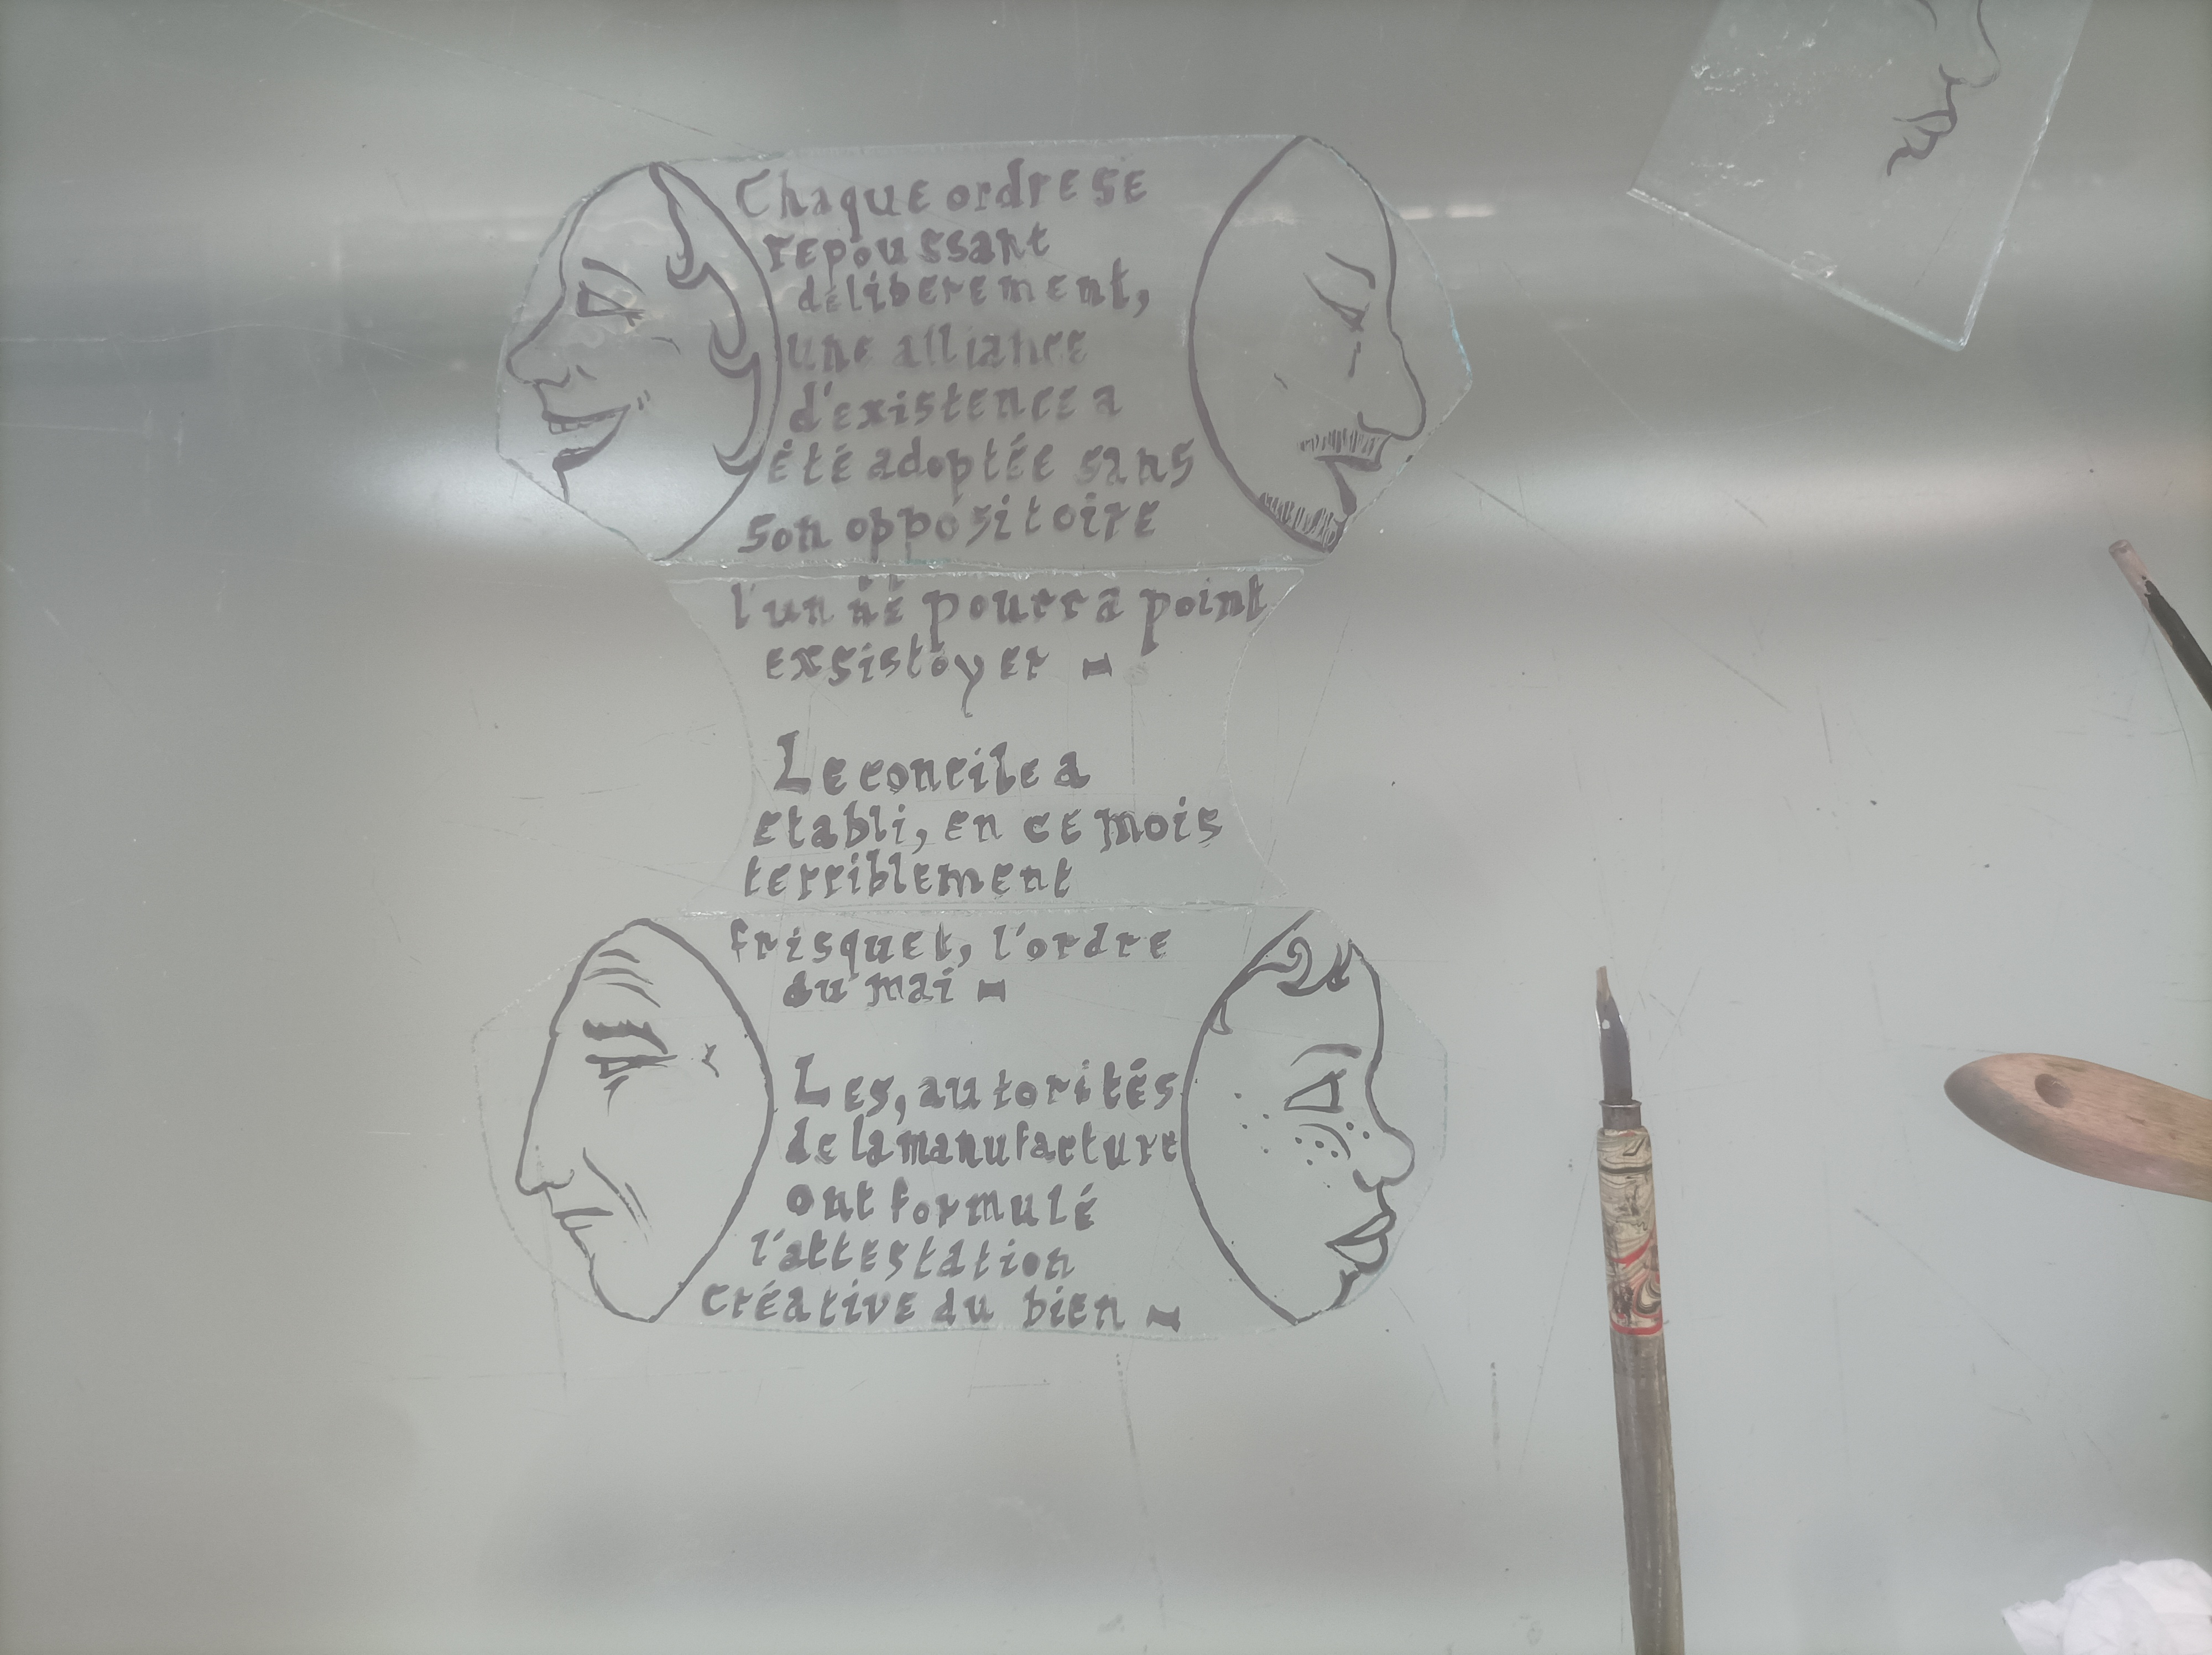 Chaque ordre se
repoussant
déliberement,
une alliance
d'existence a
été adoptée sans
son oppositoire
l'un né pourra point
exsistoyer -
Le concile a
etabli, en ce mois
terriblement
frisquet, l'ordre
du mai -
Les, autorités
de la manufacture
ont formulé
l'attestation
créative du bien -